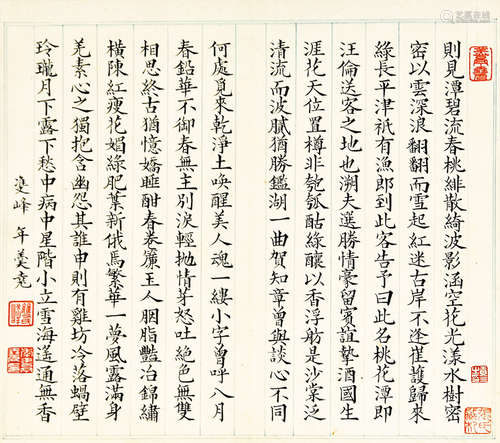 則見潭碧流春桃緋散綺波影涵空花光漾水樹密
密以雲深浪翻翻而雪起紅迷古岸不逢崔護歸來
綠長平津祇有漁郎到此客告予曰此名桃花潭即
汪倫送客之地也溯夫選勝情豪留賓誼摯酒國生
涯花天位置樽非匏瓠酤綠釀以香浮舫是沙棠泛
清流而波膩猶勝鑑湖一曲賀知章曾與談心不同
何處覓來乾淨土喚醒美人魂一縷小字曾呼八月
春鉛華不御春無主別淚輕拋情芽怒吐絕色無雙
相思終古猶憶嬌睡酣春卷簾玉人胭脂豔冶錦繡
橫陳紅瘦花娟綠肥葉新俄焉繁華一夢風露滿身
羌素心之獨抱含幽怨其誰申則有雞坊冷落蝸壁
玲瓏月下露下愁中病中星階小立雪海遙通無香
年羹堯